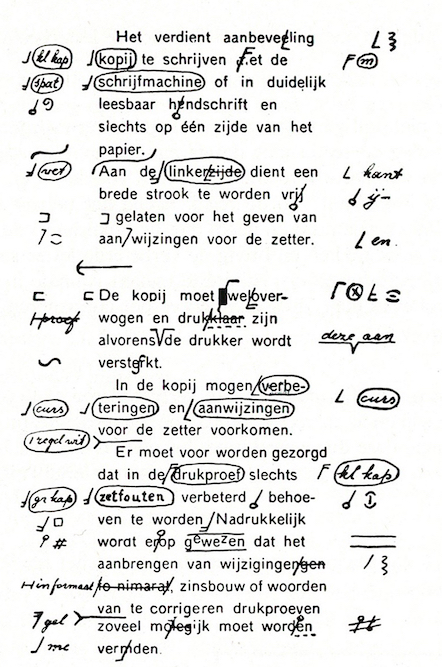 Het verdient aanbeveeling
kl kap kopij te schrijven f.et de F m
spat schrijfmachine of in duidelijk
leesbaar hendschrift en
slechts op één zijde van het
papier.
vet Aan de linkerzijde dient een kant
brede strook te worden vrij ij
gelaten voor het geven van
aan/wijzingen voor de zetter. en.
De kopij moet welover-
proef wogen en drukklaar zijn
alvorens de drukker wordt deze aan
versterkt.
In de kopij mogen verbe-
curs teringen en aanwijzingen curs
voor de zetter voorkomen.
1 regel wit
Er moet voor worden gezorgd
dat in de drukproef slechts F kl kap
gr kap zetfouten verbeterd behoe-
ven te worden Nadrukkelijk
# wordt erop gewezen dat het
aanbrengen van wijzigingengen
informast to nimarat, zinsbouw of woorden
van te corrigeren drukproeven
gel zoveel mologijk moet worden
me verriden.